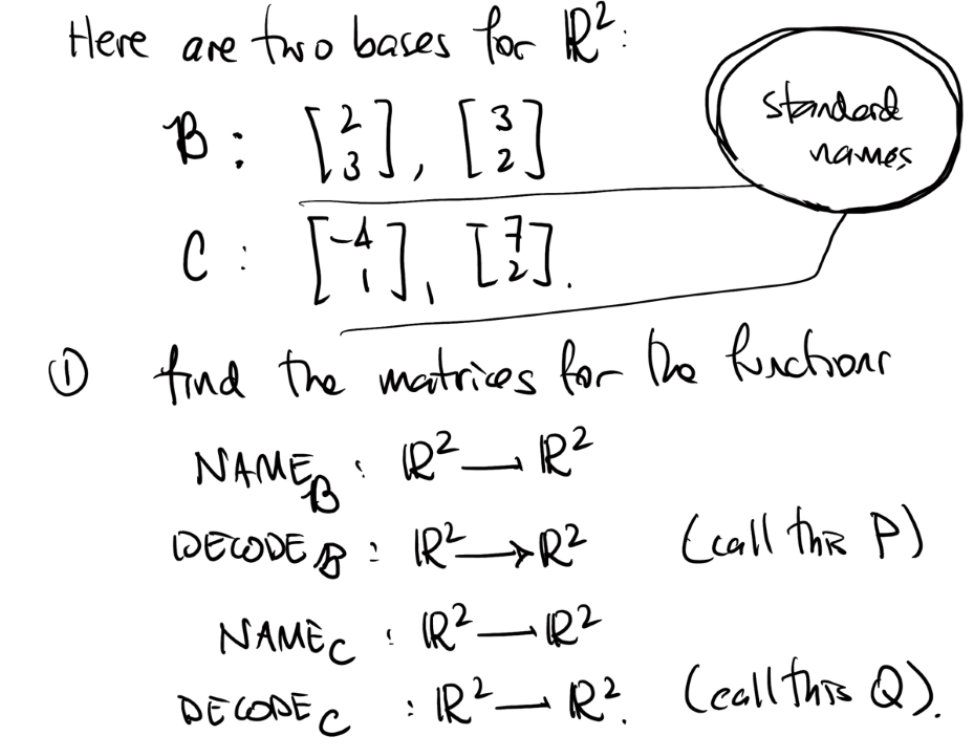 Here are two bases for ℝ²:
standard
names
B: [2 3], [3 2]
C: [-4 1], [7 2].
① find the matrices for the functions
NAME_B : ℝ² — ℝ²
DECODE_B : ℝ² → ℝ² (call this P)
NAME_C : ℝ² — ℝ²
DECODE_C : ℝ² — ℝ². (call this Q).